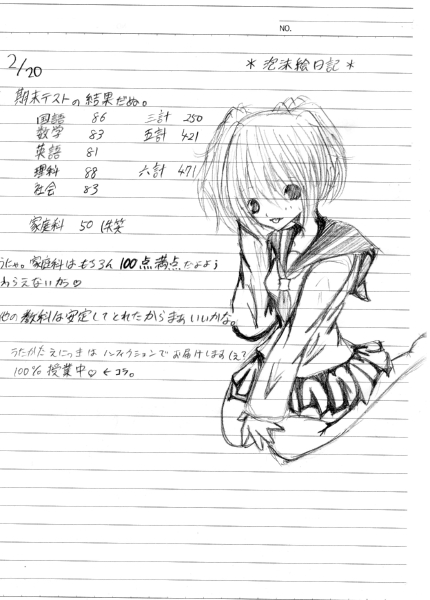 NO.
2/20
* 泡沫絵日記 *
期末テストの結果だぬ。
国語 86 三計 250
数学 83 五計 421
英語 81
理科 88 六計 471
社会 83
家庭科 50 (失笑
うにゃ。家庭科はもちろん100点満点だよよう
わらえないから♡
他の教科は安定してとれたからまぁいいかな。
うたかたえにっきはノンフィクションでお届けします(え?
100% 授業中♡ ←コラ。